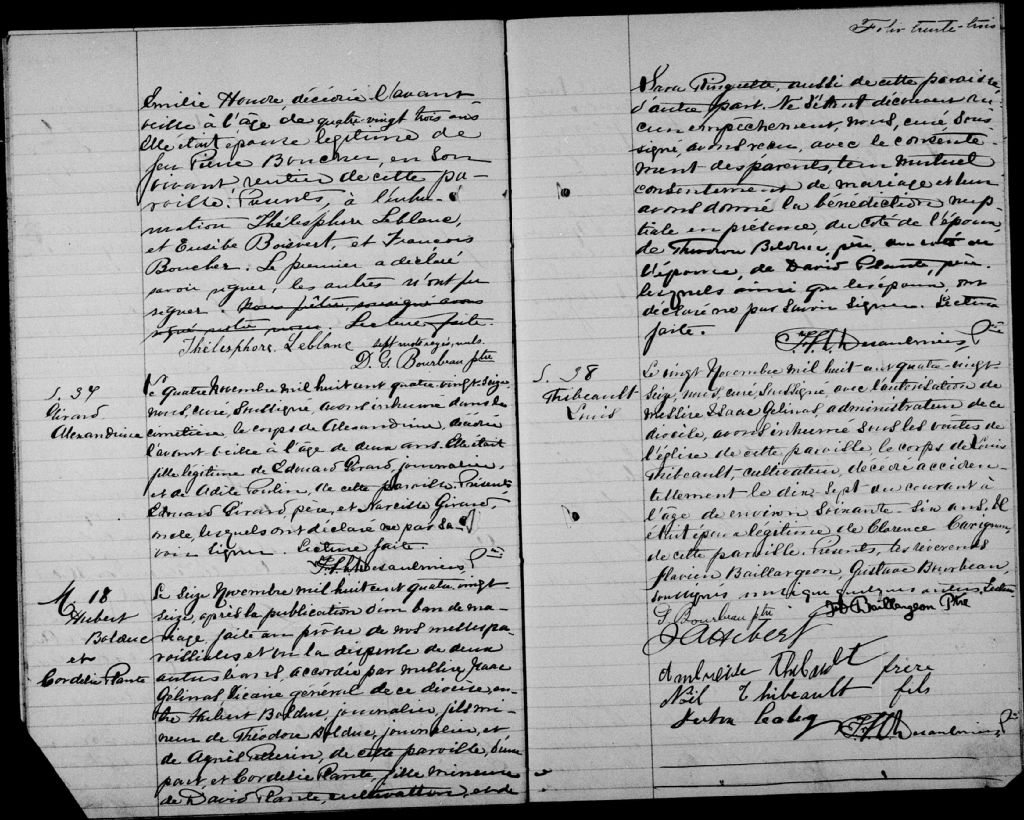 Emilie Houde, décédée l'avant
veille à l'âge de quatre vingt trois ans
Elle était épouse légitime de
feu Pierre Boucher, en son
vivant rentier de cette pa-
roisse. Présents, à l'inhu-
mation Thélesphore Leblanc,
et Eusèbe Boisvert, et François
Boucher. Le premier a déclaré
savoir signer, les autres n'ont pu
signer. Nous prêtre, soussigné avons
signé nous, Lecture faite.
Thélesphore Leblanc sept mots rayés, nuls.
D. G. Bourbeau ptre
S. 37
Girard
Alexandrine
Le quatre Novembre mil huit cent quatre-vingt-seize,
nous, curé, soussigné, avons inhumé dans le
cimetière, le corps de Alexandrine, décédée
l'avant veille à l'âge de deux ans. Elle était
fille légitime de Edouard Girard, journalier,
et de Adèle Poulin, de cette paroisse. Présents
Edouard Girard, père, et Narcisse Girard,
oncle, lesquels ont déclaré ne pas sa-
voir signer. Lecture faite.
F. L. Desaulniers, Ptre
M. 18
Hubert
Bolduc
et
Cordélie Plante
Le seize Novembre mil huit cent quatre-vingt
seize, après la publication d'un ban de ma-
riage, faite au prône de nos messes pa-
roissiales et vu la dispense de deux
autres bans, accordée par messire Isaac
Gélinas, Vicaire général de ce diocèse, en-
tre Hubert Bolduc, journalier, fils mi-
neur de Théodore Bolduc, journalier, et
de Agnès, de cette paroisse, d'une
part, et Cordélie Plante, fille mineure
de David Plante, cultivateur, et de
Folio trente-trois
Sara Pinguette, aussi de cette paroisse,
d'autre part. Ne s'étant découvert au-
cun empêchement, nous, curé sous-
signé, avons reçu, avec le consente-
ment des parents, leur mutuel
consentement de mariage et leur
avons donné la bénédiction nup-
tiale en présence, du côté de l'époux,
de Théodore Bolduc, père, du côté de
l'épouse, de David Plante, père.
lesquels ainsi que les époux, ont
déclaré ne pas savoir signer. Lecture
faite.
F. L. Desaulniers, Ptre
S. 38
Thibeault
Louis
Le vingt Novembre mil huit-cent quatre-vingt-
seize, nous, curé soussigné, avec l'autorisation de
messire Isaac Gélinas administrateur de ce
diocèse, avons inhumé sous les voûtes de
l'église de cette paroisse, le corps de Louis
Thibeault, cultivateur, décédé acciden-
tellement le dix-sept du courant à
l'âge de environ soixante-six ans. Il
était époux légitime de Clarence Carignan,
de cette paroisse. Présents, les révérends
Flavien Baillargeon, Gustave Bourbeau,
soussignés ainsi que quelques autres, Lecture
G Bourbeau ptre Fl Baillargeon Ptre
J A Hébert
Thibault frère
Noël Thibeault fils
F. L. Desaulniers, Ptre